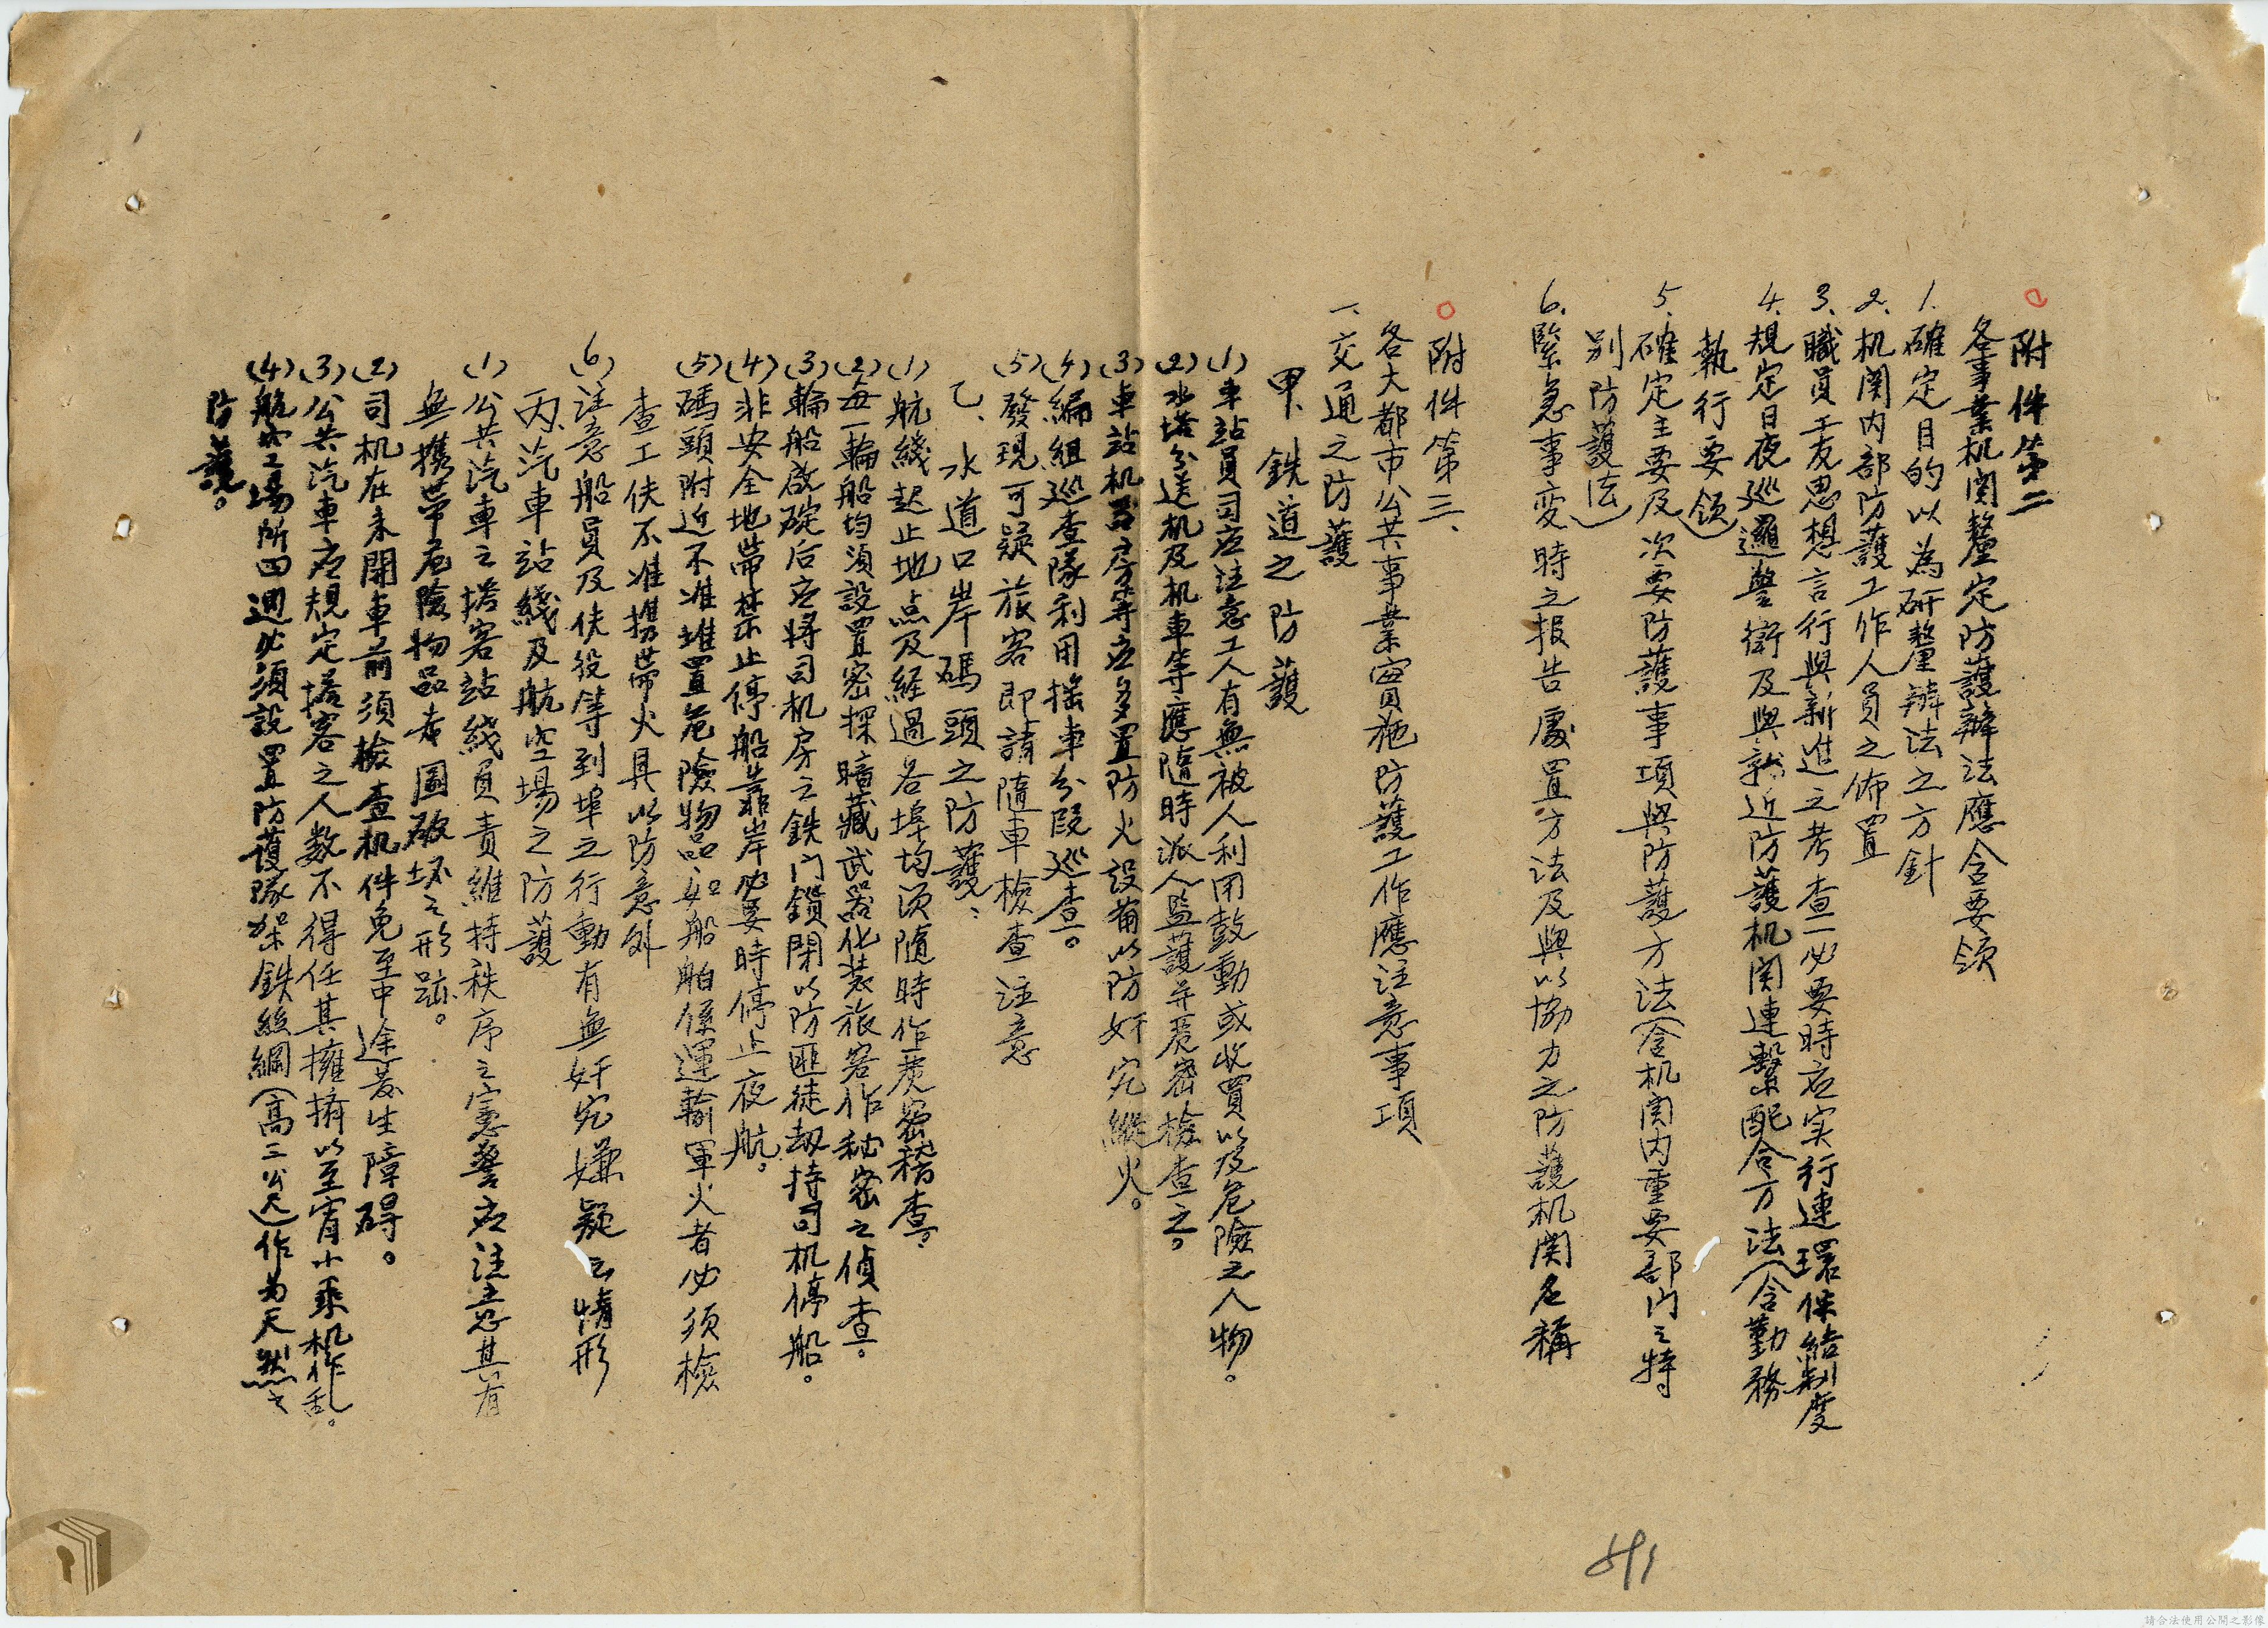 附件第二
各事業机関釐定防護辦法應含要領
1. 確定目的以為研釐辦法之方針
2. 机関内部防護工作人員之佈置
3. 職員工友思想言行與新進之考查一必要時应实行連環保結制度
4. 規定日夜巡邏警衛及與就近防護机関連繫配合方法(含勤務
執行要領)
5. 確定主要及次要防護事項與防護方法(含机関内重要部门之特
別防護法)
6. 緊急事変時之报告處置方法及與以協力之防護机関名稱
附件第三、
各大都市公共事業實施防護工作應注意事項
一、交通之防護
甲、鉄道之防護
(1)車站員司应注意工人有無被人利用鼓動或收買以及危險之人物。
(2)水塔分送机及机車等應隨時派人監護并嚴密檢查之。
(3)車站机器房等应多置防火設備以防奸宄縱火。
(4)編組巡查隊利用搖車分段巡查。
(5)發現可疑旅客即請隨車檢查注意
乙、水道口岸碼頭之防護、
(1)航綫起止地点及経過各埠均須隨時作嚴密稽查。
(2)每一輪船均須設置密探暗藏武器化装旅客作秘密之偵查。
(3)輪船啟碇后应將司机房之鉄门鎖閉以防匪徒刼持司机停船。
(4)非安全地帶禁止停船靠岸必要時停止夜航。
(5)碼頭附近不准堆置危險物品、如船舶係運輸軍火者必須檢
查工伕不准攜帶火具以防意外
(6)注意船員及伕役等到埠之行動有無奸宄嫌疑之情形
丙、汽車站綫及航空場之防護
(1)公共汽車之搭客站綫負責維持秩序之憲警应注意其有
無攜帶危險物品希圖破坏之形跡。
(2)司机在未開車前須檢查机件免至中途發生障碍。
(3)公共汽車应規定搭客之人数不得任其擁擠以至宵小乘机作乱。
(4)航空工場所四週必須設置防護隊架鉄絲網(高三公尺)作為天然之
防護。
691
請合法使用公開之影像